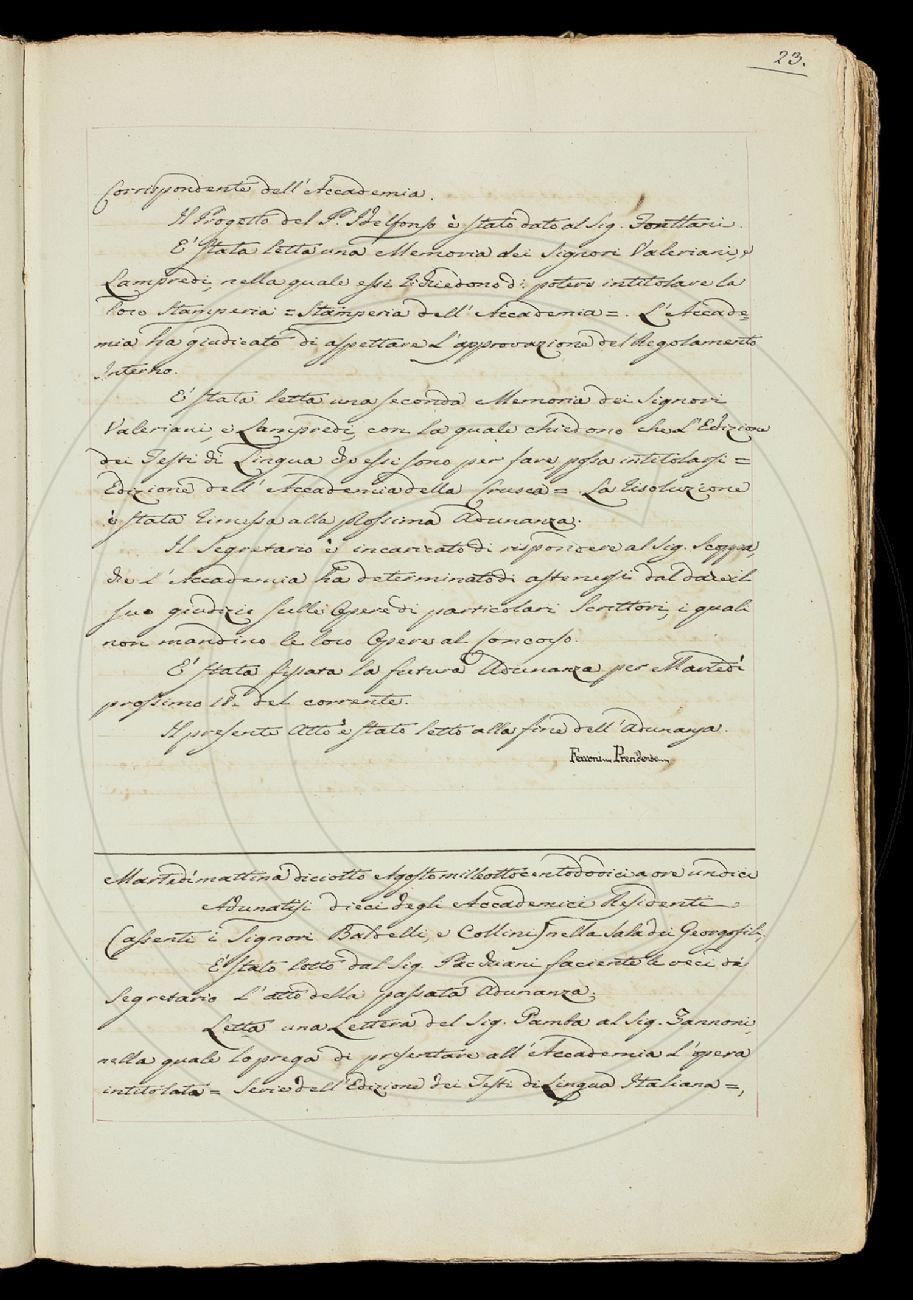 23.
Corrispondente dell'Accademia.
Il Progetto del P. Idelfonso è stato dato al Sig. Fontani.
E' stata letta una Memoria dei Signori Valeriani, e
Lampredi, nella quale essi richiedono di potere intitolare la
loro Stamperia = Stamperia dell'Accademia =. L'Accade=
mia ha giudicato di aspettare l'approvazione del Regolamento
Interno.
E' stata letta una seconda Memoria dei Signori
Valeriani, e Lampredi, con la quale chiedono che l'Edizione
dei Testi di Lingua che essi sono per fare possa intitolarsi =
Edizione dell'Accademia della Crusca =. La risoluzione
è stata rimessa alla prossima Adunanza.
Il Segretario è incaricato di rispondere al Sig. Scoppa,
che l'Accademia ha determinato di astenersi dal dare il
suo giudizio sulle Opere di particolari Scrittori, i quali
non mandino le loro Opere al Concorso.
E' stata fissata la futura Adunanza per Martedì
prossimo 18. del corrente.
Il presente Atto è stato letto alla fine dell'Adunanza.
Ferroni Presidente
Martedì mattina diciotto Agosto milleottocentododici a ore undici
Adunatisi dieci degli Accademici Residenti
(assenti i Signori Baldelli, e Collini) nella Sala dei Georgofili,
E' stato letto dal Sig. Pacchiani faciente le veci di
Segretario l'atto della passata Adunanza.
Letta una Lettera del Sig. Pamba al Sig. Zannoni,
nella quale lo prega di presentare all'Accademia l'opera
intitolata = Serie dell'Edizione dei Testi di Lingua Italiana =,